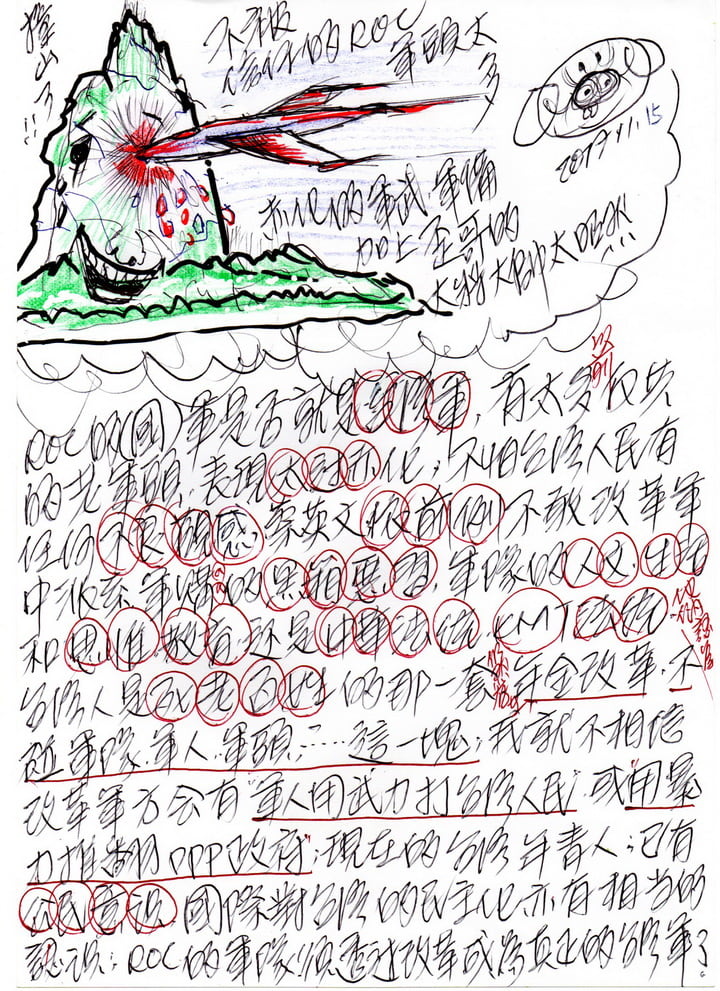 撞山了!!
不被
信任的ROC
軍頭太
多
2017.11.15
赤化的軍武.軍備
加上歪哥的
大將大帥太凶狠!!!
以前
ROC的(國)軍是否就是 軍,有太多
的老軍頭,表現太 赤化;不怕台灣人民有
任何不良觀感,蔡英文依前例不敢改革軍
中派系,軍購的黑箱惡習,軍隊的人文.生活
和思維.教育.還是中華法統.KMT政統
台灣人是 老百姓的那一套 年金改革.不
碰軍隊.軍人.軍頭……這一塊;我就不相信
改革軍方會有"軍人用武力打台灣人民"或"用暴
力推翻DPP政府";現在的台灣年青人;已有
公民意識.國際對台灣的民主化.亦有相當的
認識;ROC的軍隊須透過改革成為真正的台灣軍了